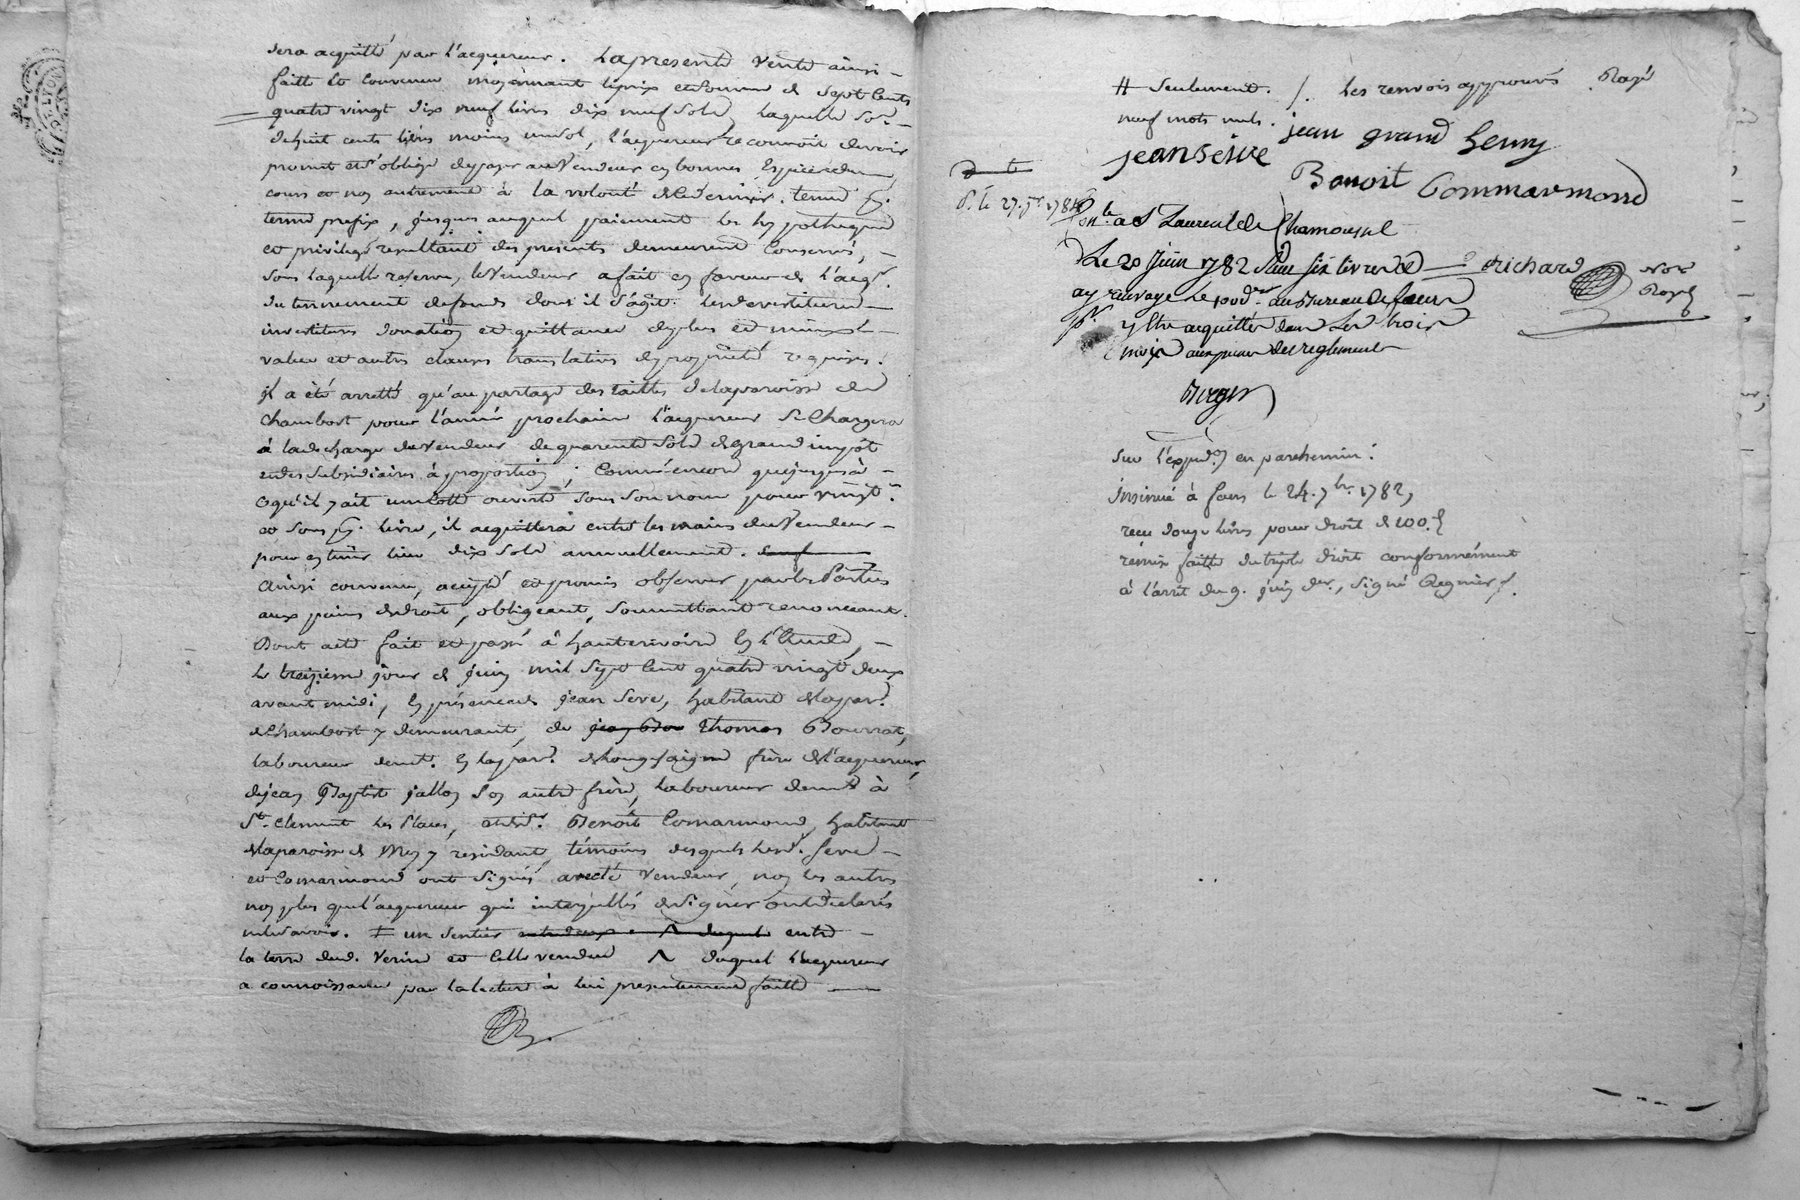 sera acquitté par l'acquereur. La presente vente ainsi –
faitte et convenue moyennant le prix et somme de sept cents
quatre vingt dix neuf livres dix neuf sols, laquelle
de huit cents livres moins un sol, l'acquereur reconnoit devoir
promet et s'oblige de payer au vendeur en bonnes espèces du
cours et non autrement à la volonté de ce dernier. terme pr.
terme prefix, jusques auquel paiement les hypotheques
et privileges resultant des presents demeurent conservés, –
sous laquelle reserve, le vendeur a fait en faveur de l'acqr.
du tennement de fonds dont il s'agit les devestitures
investitures donation et quittance de plus et minse –
value et autres clauses translatives de propriété requises.
il a été arretté qu'au partage des tailles de la paroisse de
Chambost pour l'année prochaine l'acquereur se chargera
à la decharge du vendeur de quarente sols de grand impôt
et des subsidiaires à proportion ; comme encore que jusques à –
ce qu'il y ait une cotte ouverte sous son nom pour vingt
et sous pr. livre, il acquittera entre les mains du vendeur –
pour en tenir lieu dix sols annuellement.
Ainsi convenu, accepté et promis observer par les parties
aux peines de droit, obligeant, soumettant renonceant.
Dont acte fait et passé à hauterivoire en l'étude, –
le treizieme jour de juin mil sept cent quatre vingt deux
avant midi, en présence de jean Seve, habitant de la par.
de Chambost y demeurant, de Thomas Bourrat,
laboureur demt. en la par. de longesaigne frère de l'acquereur,
de jean Baptiste jallon son autre frère, laboureur demt à
St. Clement les Places, et de Sr. Benoit Comarmond, habitant
de la paroisse de Meys y residant, témoins desquels lesd. Seve –
et Comarmond ont signés avec le vendeur, non les autres
non plus que l'acquereur qui interpellés de signer ont declarés
ne le savoir. ‡ un sentier entre –
la terre dud. Verine et celle vendue ^ duquel l'acquereur
a connoissance par la lecture à lui presentement faitte –
# seulement. /. les renvois approuvés. Rayé
neuf mots nuls.
jean grand Seuny
jean seive
Benoit Commarmond
P. le 27. 7re. 1784
Conle a St Laurent de Chamousset
Le 20 juin 1782 Reçu six livres
ay renvoyé le pnd. au Bureau de feurs
pr. y etre acquittés dans les trois
mois aux peines des reglements
Richard Not. Royal
Sur l'expedon. en parchemin :
Insinué à feurs le 24. 7bre. 1782,
reçu douze livres pour droit de 100.e
remise faitte du triple droit conformément
à l'arret du 9. juin der., signé Regnier /.